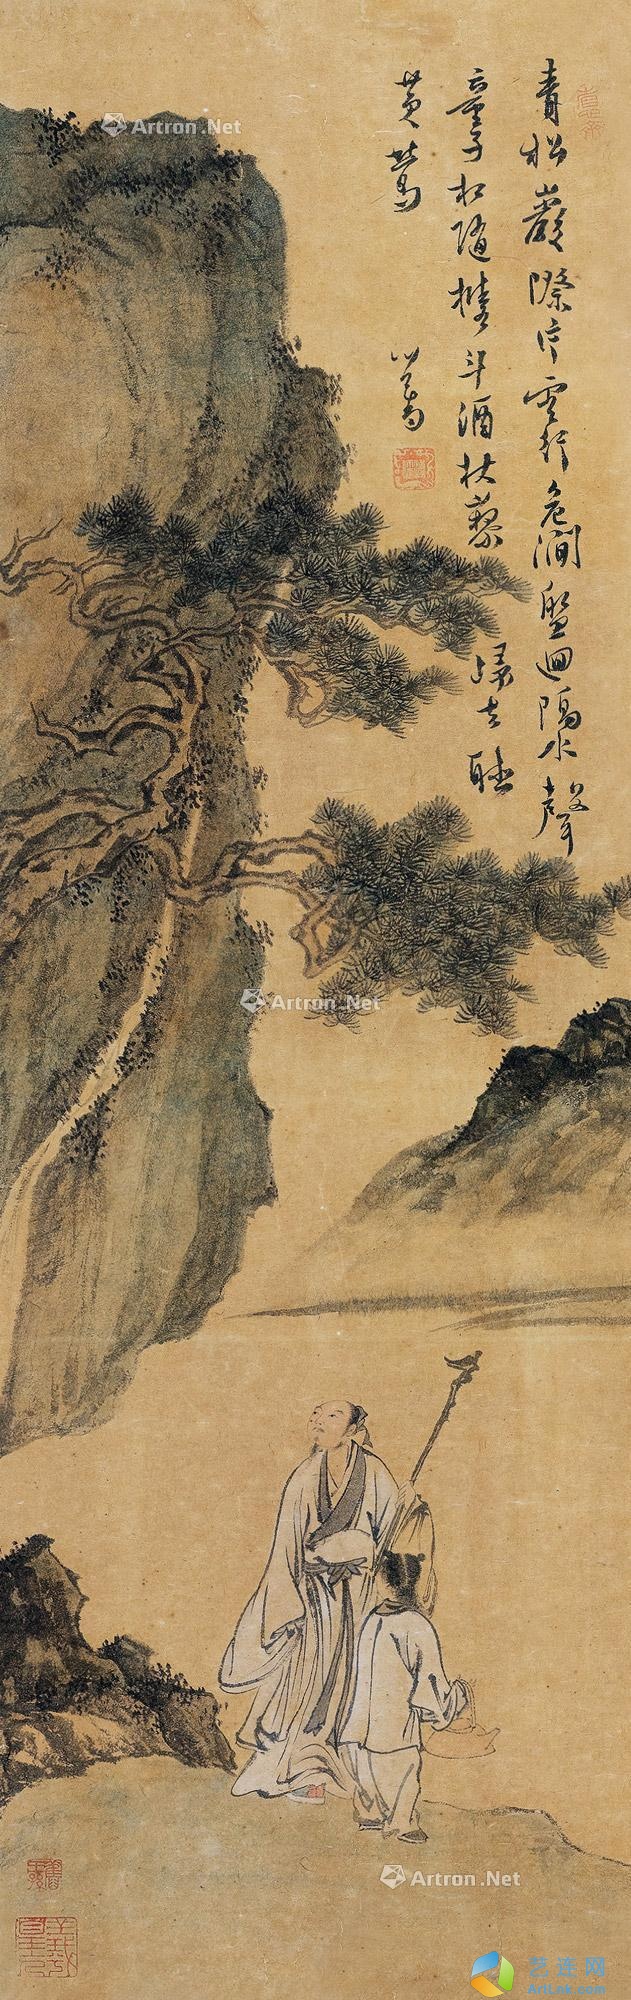 青松巖際片雲行危澗盤迴隔水聲
童子相隨攜斗酒杖藜歸去聽
黄鶯
心畬
Artron.Net
Artron.Net
Artron.Net
艺连网
ArtLink.com